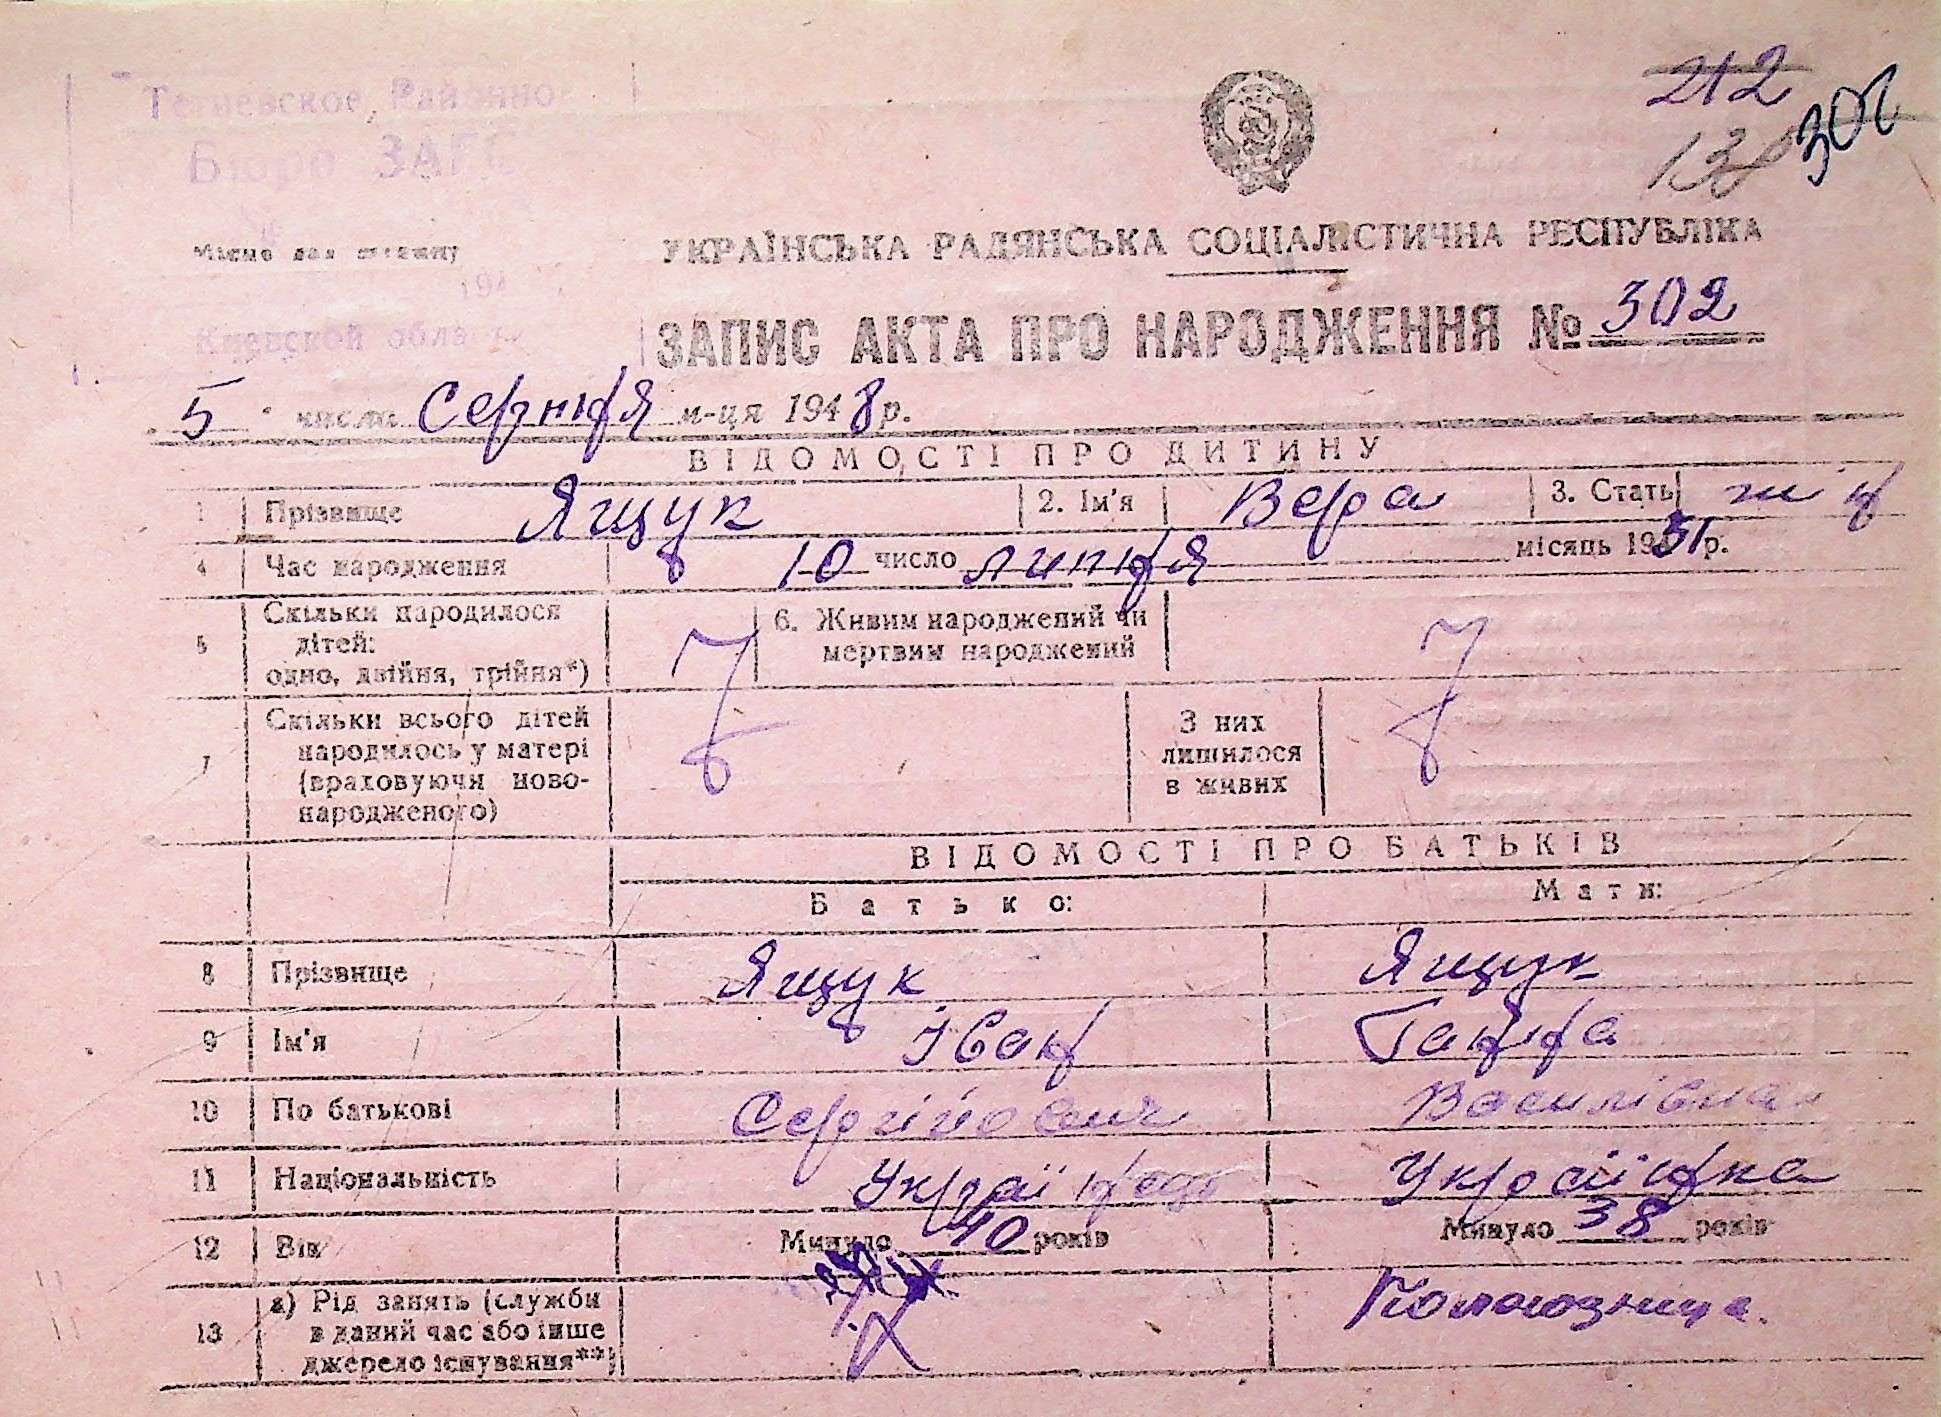 212
138 302
Тетиевское Районное
Бюро ЗАГС
Місце для штампу
194
Киевской области
УКРАЇНСЬКА РАДЯНСЬКА СОЦІАЛІСТИЧНА РЕСПУБЛІКА
ЗАПИС АКТА ПРО НАРОДЖЕННЯ № 302
5 числа Серпня м-ця 1948 р.
ВІДОМОСТІ ПРО ДИТИНУ
1 Прізвище Ящук 2. Ім'я Вера 3. Стать
4 Час народження 10 число липня місяць 1931 р.
5 Скільки народилося дітей: одно, двійня, трійня*)
6. Живим народжений чи мертвим народжений
7 Скільки всього дітей народилось у матері (враховуючи новонародженого)
З них лишилося в живих
ВІДОМОСТІ ПРО БАТЬКІВ
Батько: Мати:
8 Прізвище Ящук Ящук
9 Ім'я Іван Ганна
10 По батькові Сергійович Василівна
11 Національність Українець Українка
12 Вік Минуло 40 років Минуло 38 років
13 а) Рід занять (служби в даний час або інше джерело існування**) Колгозниця.